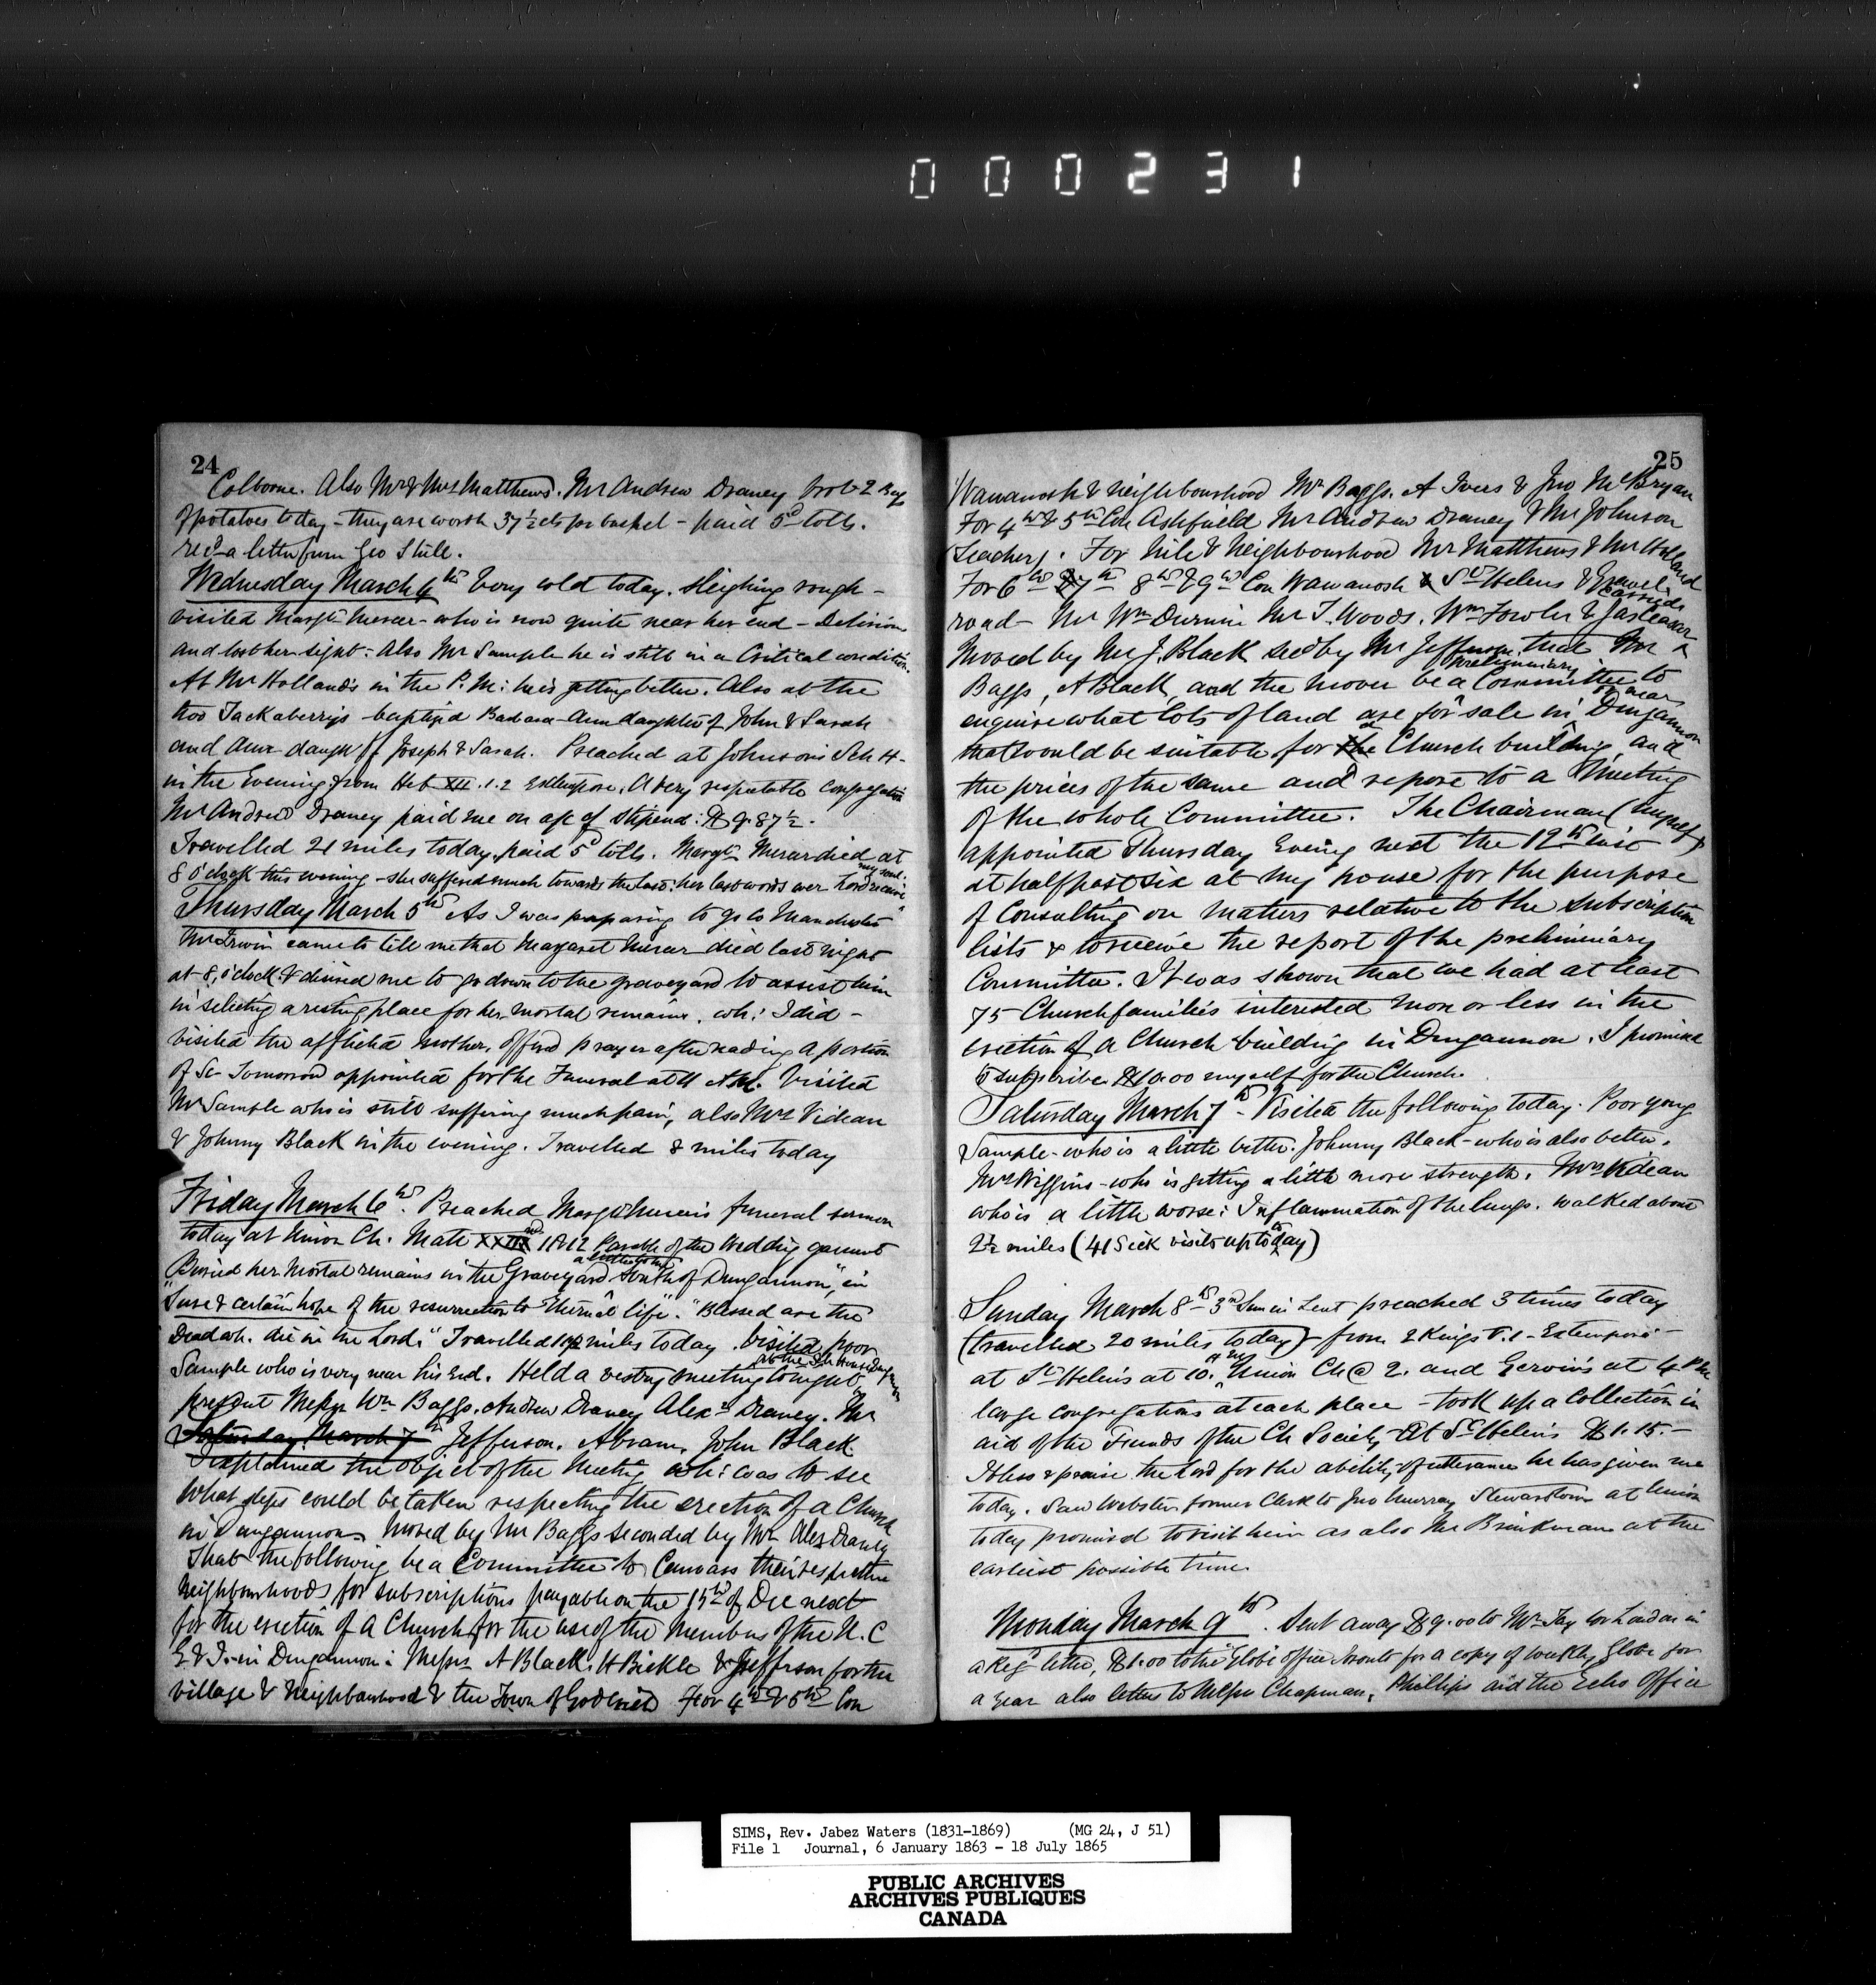 000231
24
Colborne. Also Mr & Mrs Matthews. Mr Andrew Draney brot 2 Bags
of potatoes today - they are worth 37½ cts per bushel - paid 5d tolls.
recd a letter from Geo
Wednesday March 4th Very cold today. sleighing rough -
visited Margt Mercer - who is now quite near her end - Delirious
and lost her sight: Also Mr Sample he is still in a Critical condition.
At Mr Holland's in the P.M: he is getting better. Also at the
two Tackaberry's baptized Ann daughter of John & Sarah
and daugh of Joseph & Sarah. Preached at Johnson's Sch H-
in the Evening from Heb XII.1.2 Extempore. A very respectable congregation
Mr Andrew Draney paid me on a/c of stipend: $9.87½.
Travelled 21 miles today. paid 5d tolls. Margt Mercer died at
8 o'clock this evening - she suffered much towards the last: her last words were Lord receive
my soul.
Thursday March 5th As I was preparing to go to Manchester
Mr Irwin came to tell me that Margaret Mercer died last night
at 8, o'clock & desired me to go down to the graveyard to assist him
in selecting a resting place for her mortal remains. wh: I did -
visited the afflicted mother, offered prayer after reading a portion
of Sc- Tomorrow appointed for the Funeral at 11 AM. Visited
Mr Sample who is still suffering much pain, also Mrs Videan
& Johnny Black in the evening. Travelled 8 miles today
Friday March 6th. Preached Margt Mercer's funeral sermon
today at Union Ch. Matt XXII 11&12 Parable of the Wedding garment
Buried her mortal remains in the Graveyard South of Dungannon, "in
Sure & certain hope of the resurrection to Eternal life". "Blessed are the
Dead wh. die in the Lord." Travelled miles today. Visited poor
Sample who is very near his End. Held a vestry meeting tonight at the Sch House Dungannon
present Messrs Wm Baggs. Andrew Draney Alexr Draney. Mr
Saturday March 7th Jefferson. Abram, John Black
I explained the object of the Meeting wh: was to see
what steps could be taken respecting the erection of a Church
in Dungannon. Moved by Mr Baggs seconded by Mr Alex Draney
That the following be a Committee to Canvass their respective
Neighbourhoods for subscriptions payable on the 15th of Dec next
for the erection of a Church for the use of the Members of the U. C
E & I. - in Dungannon: Messrs A Black, H Bickle & Jefferson for the
village & Neighbourhood & the Town of Goderich For 4th & 5th Con
25
Wawanosh & Neighbourhood Mr Baggs. A Ivers & Jno McBryan
For 4th & 5th Con Ashfield Mr Andrew Draney & Mr Johnson
(teacher). For Nile & Neighbourhood Mr Matthews & Mr Holland
For 6th 7th 8th & 9th Con Wawanosh & St Helens & Gravel
road - Mr Wm Durnin Mr T. Woods. Wm Fowler & Jas
Moved by Mr J. Black secd by Mr Jefferson that Mr
Baggs, A Black, and the mover be a preliminary Committee to
enquire what lots of land are for sale in or near Dungannon
that would be suitable for a Church building and
the prices of the same and report to a Meeting
of the whole Committee. The Chairman (myself)
appointed Thursday Evening next the 12th inst
at half past six at my house for the purpose
of Consulting on matters relative to the subscription
lists & to receive the report of the preliminary
Committee. It was shown that we had at least
75 Church families interested more or less in the
erection of a Church building in Dungannon. I promise
to subscribe $10.00 myself for the Church.
Saturday March 7th - Visited the following today. Poor young
Sample - who is a little better. Johnny Black - who is also better.
Mrs Wiggins - who is getting a little more strength. Mrs Videan
who is a little worse: Inflammation of the lungs. Walked about
2½ miles (41 Sick visits up to today)
Sunday March 8th - 3rd Sun in Lent preached 3 times today
(travelled 20 miles today) - from 2 Kings V.1 - Extempore -
at St Helens at 10. AM Union Ch @ 2. and Gervin's at 4 PM
large congregations at each place - took up a Collection in
aid of the Funds of the Ch Society - At St Helens $1.15. -
I bless & praise the Lord for the ability of utterance he has given me
today. Saw Webster former Clerk to Jno Murray Stewarttown at Union
today promised to visit him as also Mr Brinkman at the
earliest possible time.
Monday March 9th. Sent away $9.00 to Mr London in
a Reg letter, $1.00 to the Globe office Toronto for a copy of weekly Globe for
a year also letters to Messrs Chapman, Phillips and the Echo Office
SIMS, Rev. Jabez Waters (1831-1869) (MG 24, J 51)
File 1 Journal, 6 January 1863 - 18 July 1865
PUBLIC ARCHIVES
ARCHIVES PUBLIQUES
CANADA